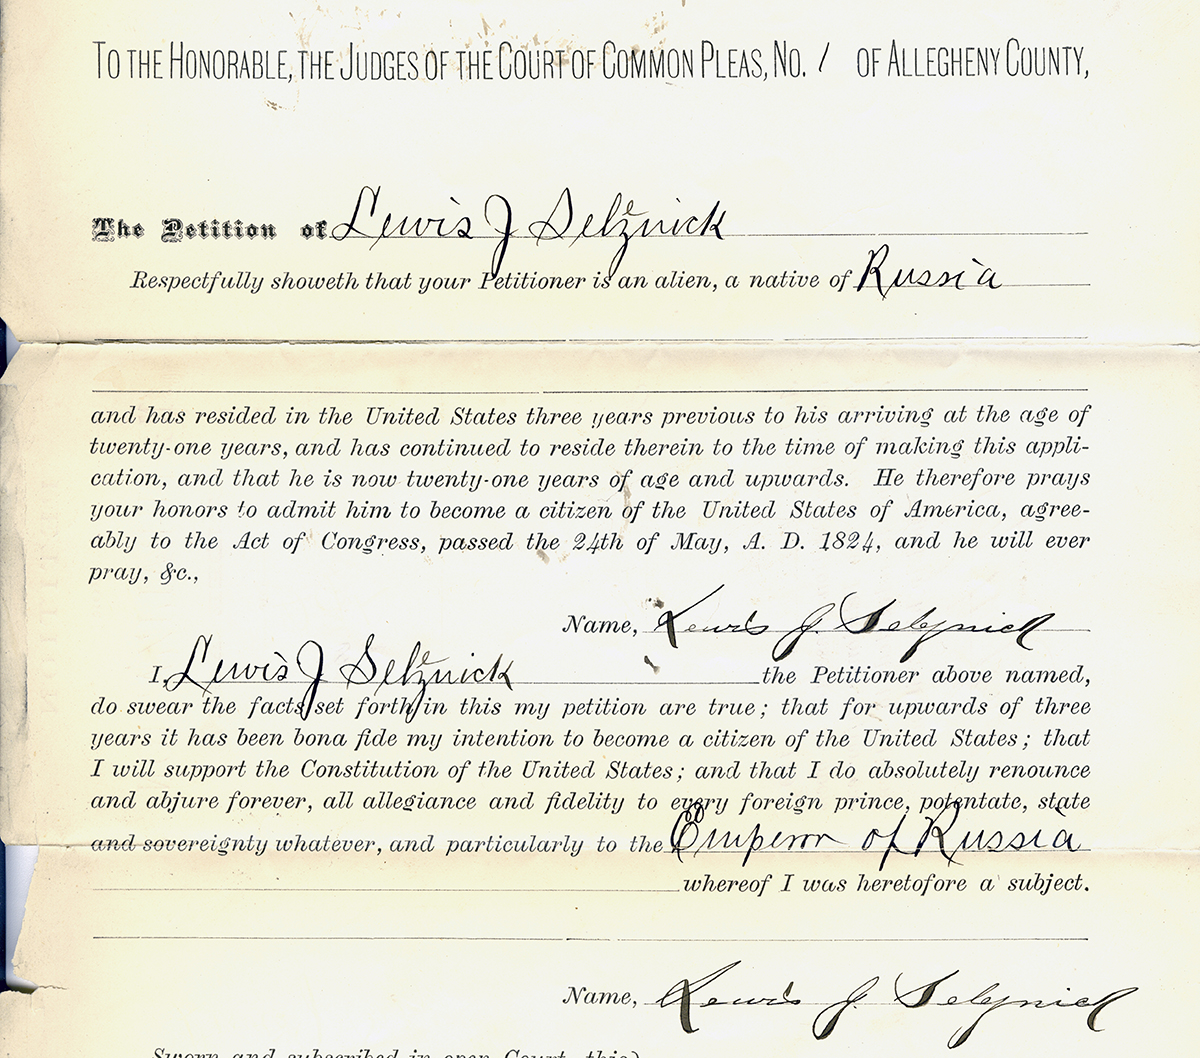 TO THE HONORABLE, THE JUDGES OF THE COURT OF COMMON PLEAS, NO. 1 OF ALLEGHENY COUNTY,
The Petition of Lewis J Selznick
Respectfully showeth that your Petitioner is an alien, a native of Russia
and has resided in the United States three years previous to his arriving at the age of
twenty-one years, and has continued to reside therein to the time of making this appli-
cation, and that he is now twenty-one years of age and upwards. He therefore prays
your honors to admit him to become a citizen of the United States of America, agree-
ably to the Act of Congress, passed the 24th of May, A. D. 1824, and he will ever
pray, &c.,
Name, Lewis J. Selznick
I, Lewis J Selznick the Petitioner above named,
do swear the facts set forth in this my petition are true; that for upwards of three
years it has been bona fide my intention to become a citizen of the United States; that
I will support the Constitution of the United States; and that I do absolutely renounce
and abjure forever, all allegiance and fidelity to every foreign prince, potentate, state
and sovereignty whatever, and particularly to the Emperor of Russia
whereof I was heretofore a subject.
Name, Lewis J. Selznick
Sworn and subscribed in open Court, this)